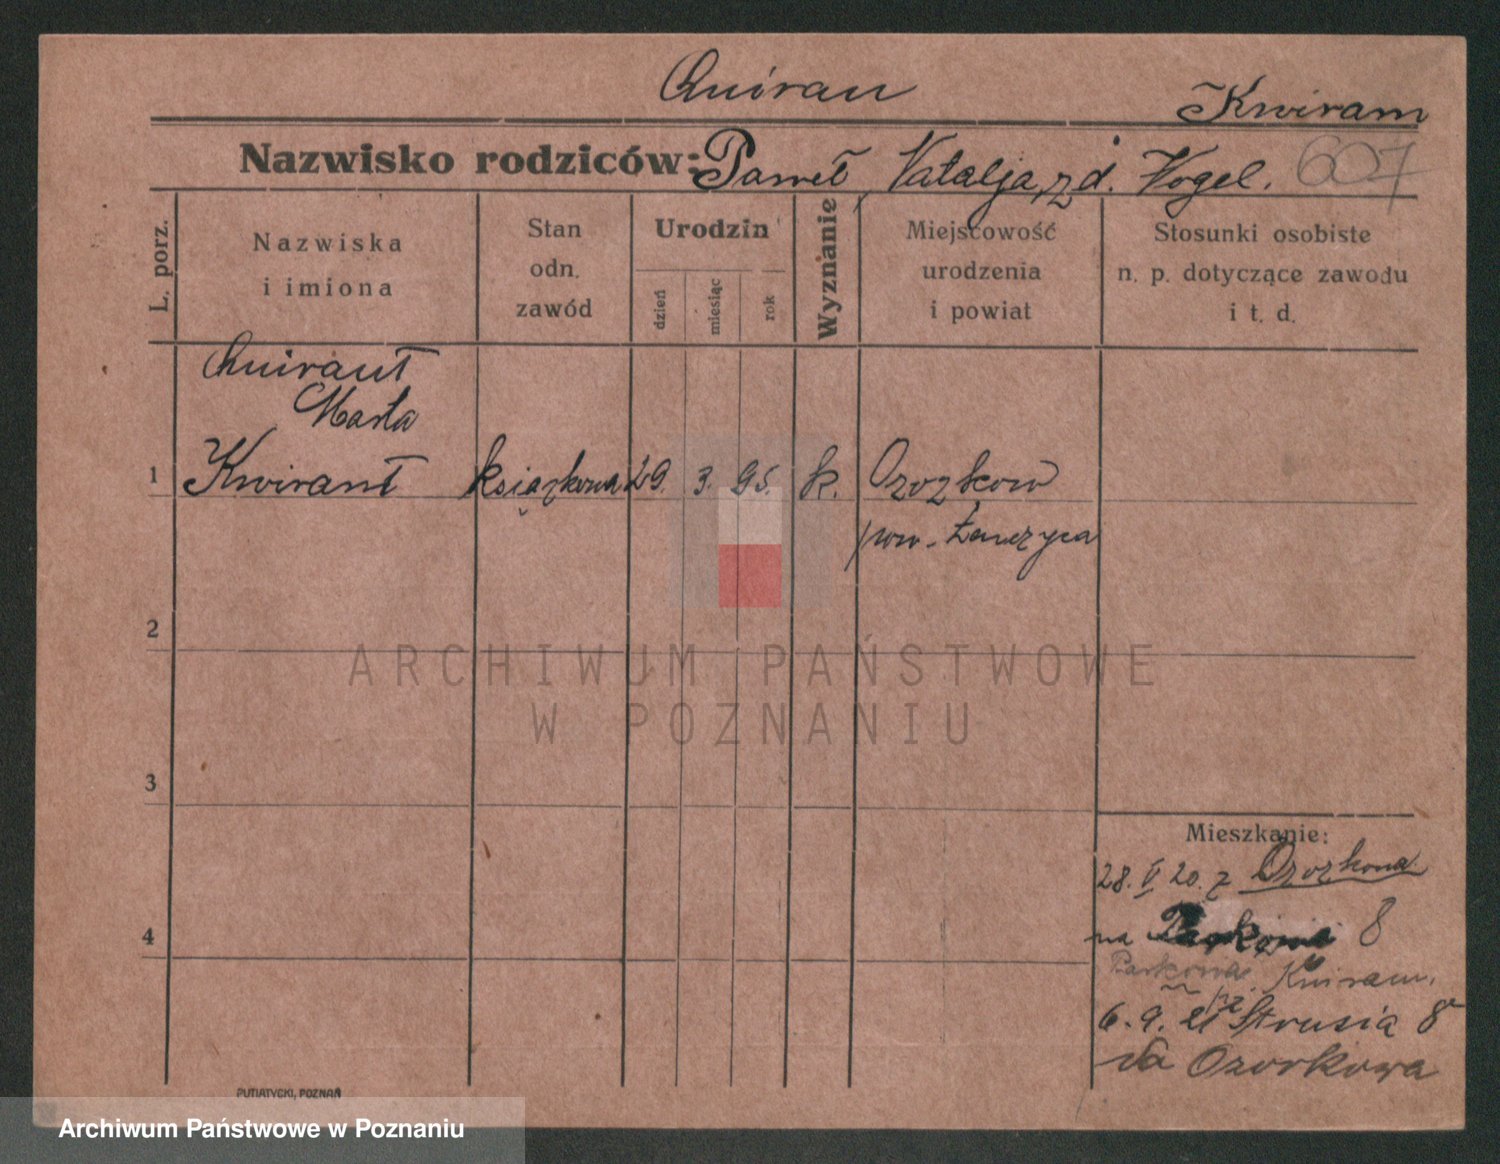 Quiram
Kwiram
Nazwisko rodziców: Paweł, Natalja, z d. Vogel. 607
L. porz.
Nazwiska
i imiona
Stan
odn.
zawód
Urodzin
dzień
miesiąc
rok
Wyznanie
Miejscowość
urodzenia
i powiat
Stosunki osobiste
n. p. dotyczące zawodu
i t. d.
Quirant
Marta
1 Kwirant książkowa 29. 3. 95. k. Ozorkow
pow. Łenczyca
2
3
4
Mieszkanie:
28. V 20. z Ozorkowa
na 8
Parkowa Kwiram.
6. 9. 21 Strusia 8
do Ozorkowa
PUTIATYCKI, POZNAŃ
ARCHIWUM PAŃSTWOWE
W POZNANIU
Archiwum Państwowe w Poznaniu